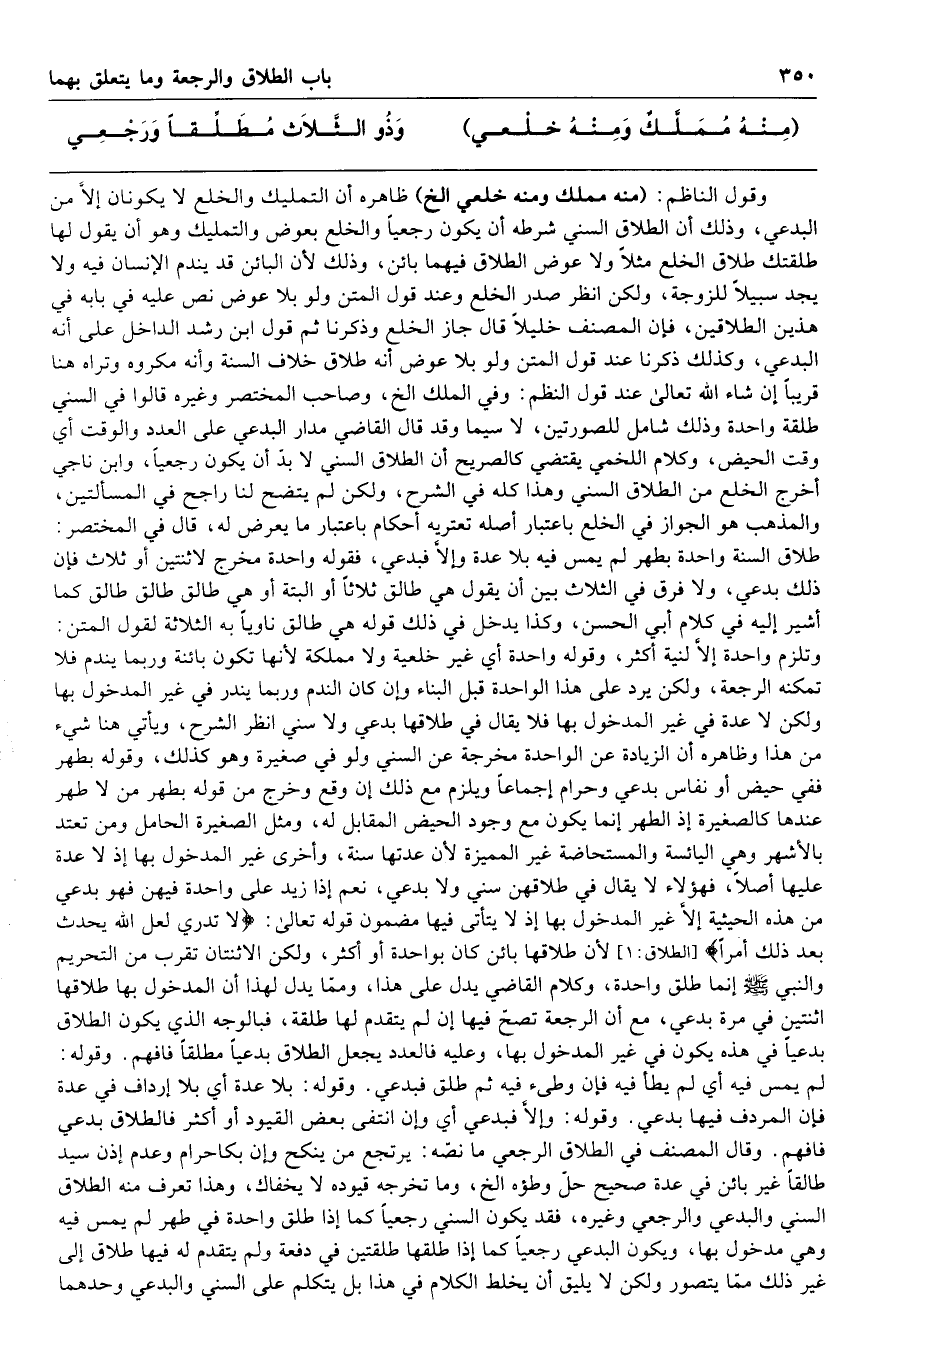 ٣٥٠ باب الطلاق والرجعة وما يتعلق بهما
(مِـنْـهُ مُـمَـلَّـكٌ وَمِـنْـهُ خـلْـعـي) وَذُو الـثَّـلاَثِ مُـطَـلِّـقـاً وَرَجْـعِـي
وقول الناظم: (منه مملك ومنه خلعي الخ) ظاهره أن التمليك والخلع لا يكونان إلاَّ من
البدعي، وذلك أن الطلاق السني شرطه أن يكون رجعياً والخلع بعوض والتمليك وهو أن يقول لها
طلقتك طلاق الخلع مثلاً ولا عوض الطلاق فيهما بائن، وذلك لأن البائن قد يندم الإنسان فيه ولا
يجد سبيلاً للزوجة، ولكن انظر صدر الخلع وعند قول المتن ولو بلا عوض نص عليه في بابه في
هذين الطلاقين، فإن المصنف خليلاً قال جاز الخلع وذكرنا ثم قول ابن رشد الداخل على أنه
البدعي، وكذلك ذكرنا عند قول المتن ولو بلا عوض أنه طلاق خلاف السنة وأنه مكروه وتراه هنا
قريباً إن شاء الله تعالىٰ عند قول النظم: وفي الملك الخ، وصاحب المختصر وغيره قالوا في السني
طلقة واحدة وذلك شامل للصورتين، لا سيما وقد قال القاضي مدار البدعي على العدد والوقت أي
وقت الحيض، وكلام اللخمي يقتضي كالصريح أن الطلاق السني لا بدّ أن يكون رجعياً، وابن ناجي
أخرج الخلع من الطلاق السني وهذا كله في الشرح، ولكن لم يتضح لنا راجح في المسألتين،
والمذهب هو الجواز في الخلع باعتبار أصله تعتريه أحكام باعتبار ما يعرض له، قال في المختصر:
طلاق السنة واحدة بطهر لم يمس فيه بلا عدة وإلاَّ فبدعي، فقوله واحدة مخرج لاثنتين أو ثلاث فإن
ذلك بدعي، ولا فرق في الثلاث بين أن يقول هي طالق ثلاثاً أو البتة أو هي طالق طالق طالق كما
أشير إليه في كلام أبي الحسن، وكذا يدخل في ذلك قوله هي طالق ناوياً به الثلاثة لقول المتن:
وتلزم واحدة إلاَّ لنية أكثر، وقوله واحدة أي غير خلعية ولا مملكة لأنها تكون بائنة وربما يندم فلا
تمكنه الرجعة، ولكن يرد على هذا الواحدة قبل البناء وإن كان الندم وربما يندر في غير المدخول بها
ولكن لا عدة في غير المدخول بها فلا يقال في طلاقها بدعي ولا سني انظر الشرح، ويأتي هنا شيء
من هذا وظاهره أن الزيادة عن الواحدة مخرجة عن السني ولو في صغيرة وهو كذلك، وقوله بطهر
ففي حيض أو نفاس بدعي وحرام إجماعاً ويلزم مع ذلك إن وقع وخرج من قوله بطهر من لا طهر
عندها كالصغيرة إذ الطهر إنما يكون مع وجود الحيض المقابل له، ومثل الصغيرة الحامل ومن تعتد
بالأشهر وهي اليائسة والمستحاضة غير المميزة لأن عدتها سنة، وأخرى غير المدخول بها إذ لا عدة
عليها أصلاً، فهؤلاء لا يقال في طلاقهن سني ولا بدعي، نعم إذا زيد على واحدة فيهن فهو بدعي
من هذه الحيثية إلاَّ غير المدخول بها إذ لا يتأتى فيها مضمون قوله تعالىٰ: ﴿لا تدري لعل الله يحدث
بعد ذلك أمراً﴾ [الطلاق:١] لأن طلاقها بائن كان بواحدة أو أكثر، ولكن الاثنتان تقرب من التحريم
والنبي ﷺ إنما طلق واحدة، وكلام القاضي يدل على هذا، وممّا يدل لهذا أن المدخول بها طلاقها
اثنتين في مرة بدعي، مع أن الرجعة تصحّ فيها إن لم يتقدم لها طلقة، فبالوجه الذي يكون الطلاق
بدعياً في هذه يكون في غير المدخول بها، وعليه فالعدد يجعل الطلاق بدعياً مطلقاً فافهم. وقوله:
لم يمس فيه أي لم يطأ فيه فإن وطىء فيه ثم طلق فبدعي. وقوله: بلا عدة أي بلا إرداف في عدة
فإن المردف فيها بدعي. وقوله: وإلاَّ فبدعي أي وإن انتفى بعض القيود أو أكثر فالطلاق بدعي
فافهم. وقال المصنف في الطلاق الرجعي ما نصّه: يرتجع من ينكح وإن بكاحرام وعدم إذن سيد
طالقاً غير بائن في عدة صحيح حلّ وطؤه الخ، وما تخرجه قيوده لا يخفاك، وهذا تعرف منه الطلاق
السني والبدعي والرجعي وغيره، فقد يكون السني رجعياً كما إذا طلق واحدة في طهر لم يمس فيه
وهي مدخول بها، ويكون البدعي رجعياً كما إذا طلقها طلقتين في دفعة ولم يتقدم له فيها طلاق إلى
غير ذلك ممّا يتصور ولكن لا يليق أن يخلط الكلام في هذا بل يتكلم على السني والبدعي وحدهما